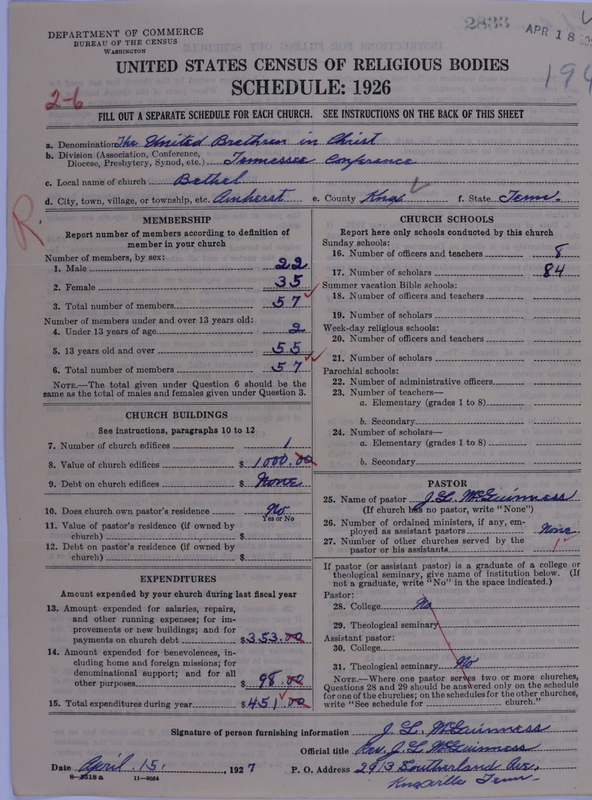 2833
APR 18
194
DEPARTMENT OF COMMERCE
BUREAU OF THE CENSUS
WASHINGTON
UNITED STATES CENSUS OF RELIGIOUS BODIES
SCHEDULE: 1926
2-6
FILL OUT A SEPARATE SCHEDULE FOR EACH CHURCH. SEE INSTRUCTIONS ON THE BACK OF THIS SHEET
a. Denomination The United Brethren in Christ
b. Division (Association, Conference,
Diocese, Presbytery, Synod, etc.) Tennessee Conference
c. Local name of church Bethel
d. City, town, village, or township, etc. Amherst e. County Knox f. State Tenn.
R
MEMBERSHIP
Report number of members according to definition of
member in your church
Number of members, by sex:
1. Male 22
2. Female 35
3. Total number of members 57
Number of members under and over 13 years old:
4. Under 13 years of age 2
5. 13 years old and over 55
6. Total number of members 57
NOTE.—The total given under Question 6 should be
same as the total of males and females given under Question 3.
CHURCH BUILDINGS
See instructions, paragraphs 10 to 12
7. Number of church edifices 1
8. Value of church edifices $ 1000.00
9. Debt on church edifices $ None
10. Does church own pastor's residence No
Yes or No
11. Value of pastor's residence (if owned by
church) $
12. Debt on pastor's residence (if owned by
church) $
EXPENDITURES
Amount expended by your church during last fiscal year
13. Amount expended for salaries, repairs,
and other running expenses; for im-
provements or new buildings; and for
payments on church debt $353.00
14. Amount expended for benevolences, in-
cluding home and foreign missions; for
denominational support; and for all
other purposes $ 98.00
15. Total expenditures during year $451.00
CHURCH SCHOOLS
Report here only schools conducted by this church
Sunday schools:
16. Number of officers and teachers 8
17. Number of scholars 84
Summer vacation Bible schools:
18. Number of officers and teachers
19. Number of scholars
Week-day religious schools:
20. Number of officers and teachers
21. Number of scholars
Parochial schools:
22. Number of administrative officers
23. Number of teachers—
a. Elementary (grades 1 to 8)
b. Secondary
24. Number of scholars—
a. Elementary (grades 1 to 8)
b. Secondary
PASTOR
25. Name of pastor J. L. McGuinness
(If church has no pastor, write "None")
26. Number of ordained ministers, if any, em-
ployed as assistant pastors None
27. Number of other churches served by the
pastor or his assistants 1
If pastor (or assistant pastor) is a graduate of a college or
theological seminary, give name of institution below. (If
not a graduate, write "No" in the space indicated.)
Pastor:
28. College No
29. Theological seminary
Assistant pastor:
30. College
31. Theological seminary No
NOTE.—Where one pastor serves two or more churches,
Questions 28 and 29 should be answered only on the schedule
for one of the churches; on the schedules for the other churches,
write "See schedule for church."
Signature of person furnishing information J. L. McGuinness
Official title Rev. J. L. McGuinness
Date April 15, 1927 P. O. Address 2913 Southerland Ave.
Knoxville Tenn.
8-5518a 11-9054